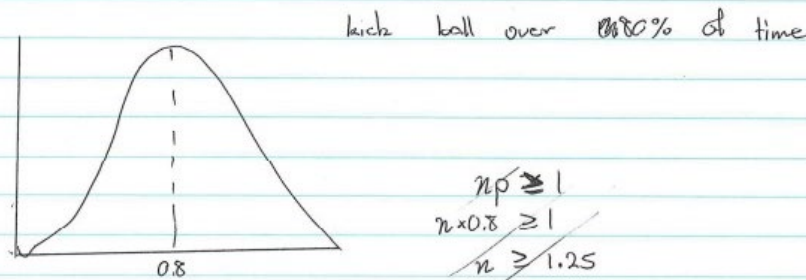 kick ball over 80% of time
np ≥ 1
n×0.8 ≥ 1
n ≥ 1.25
0.8